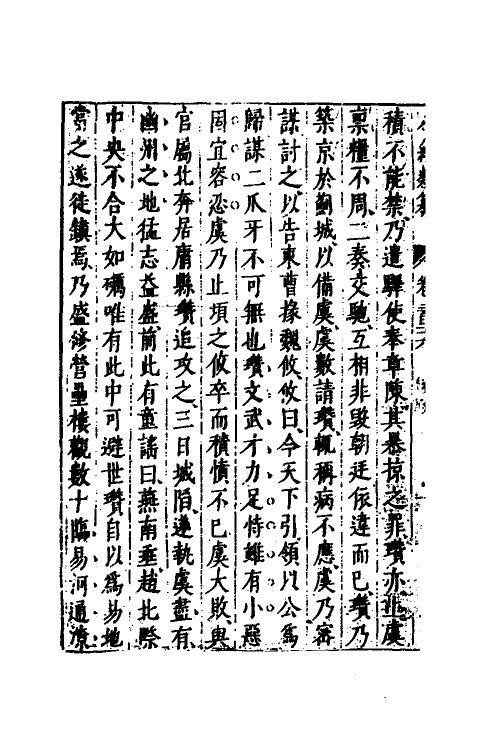 積不能禁乃遣驛使奉章陳其暴掠之罪瓚亦上虞
稟糧不周二奏交馳互相非毀朝廷依違而已瓚乃
築京於薊城以備虞虞數請瓚輒稱病不應虞乃密
謀計之以告東曹掾魏攸攸曰今天下引領以公爲
歸謀二爪牙不可無也瓚文武才力足恃雖有小惡
固宜容忍虞乃止頃之攸卒而積憤不已虞大敗與
官屬北奔居庸縣瓚追攻之三日城陷遂執虞盡有
幽州之地猛志益盛前此有童謠曰燕南垂趙北際
中央不合大如礪唯有此中可避世瓚自以爲易地
當之遂徙鎮焉乃盛修營壘樓觀數十臨易河通遼